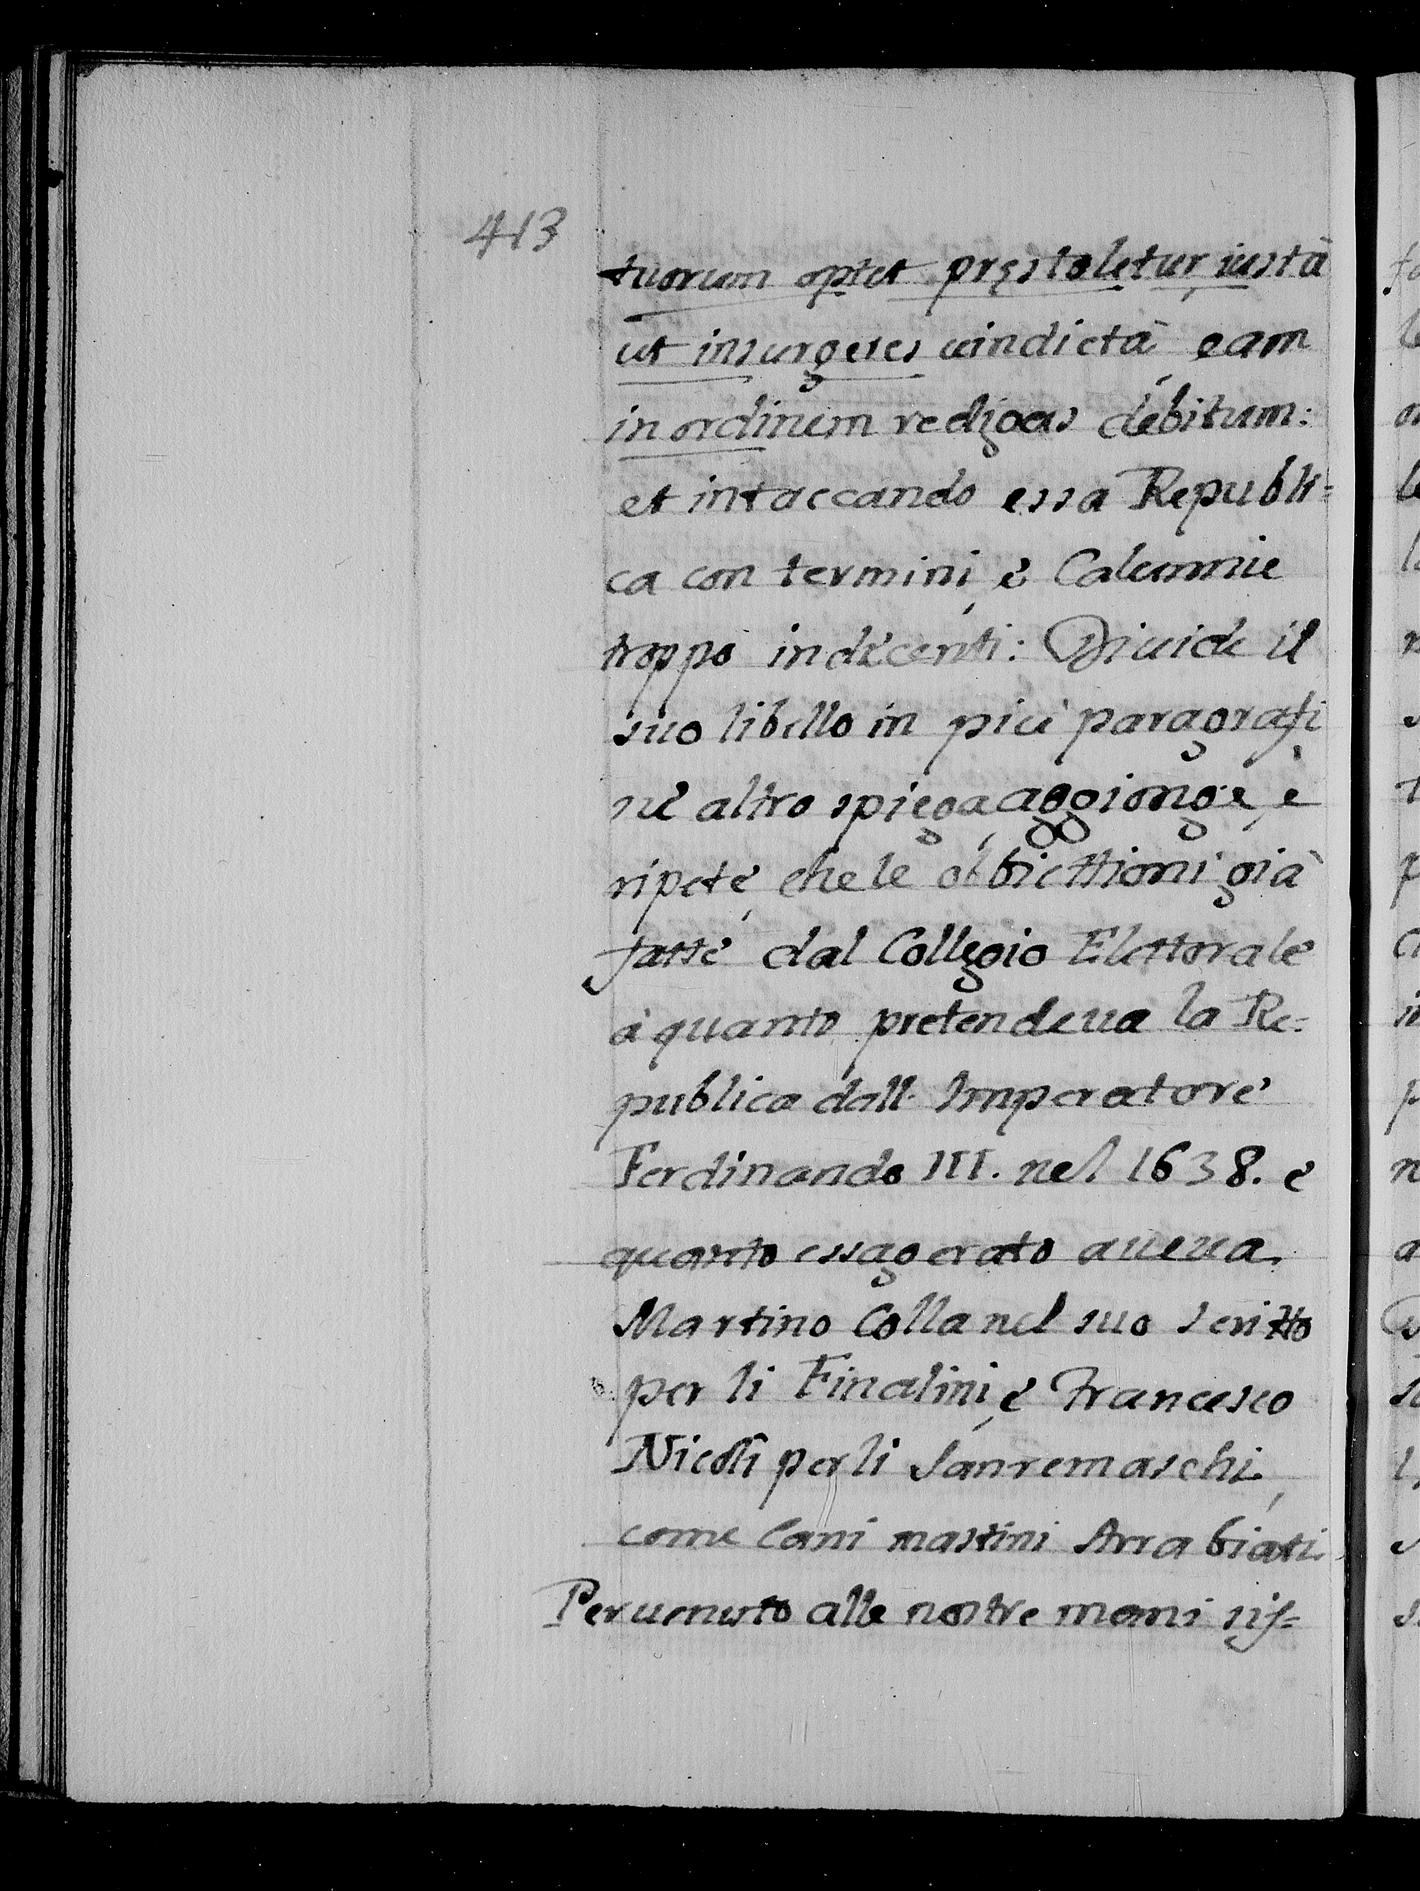 413
tuorum optet pręstoletur, iustà
ut insurgeres uindictà, eam
in ordinem redigas debitum:
et intaccando essa Republi=
ca con termini, è Calumnie
troppo indecenti: Diuide il
suo libello in più paragrafi
nè altro spiega, aggionge, è
ripete, che le obbiettioni già
fatte dal Collegio Elettorale
à quanto pretendeua la Re=
publica dall Imperatore
Ferdinando III. nel 1638. e
quanto essagerato aueua
Martino Colla nel suo scritto
per li Finalini, è Francesco
Nicolli per li Sanremaschi,
come Cani mastini Arrabiati.
Peruenuto alle nostre mani sif=